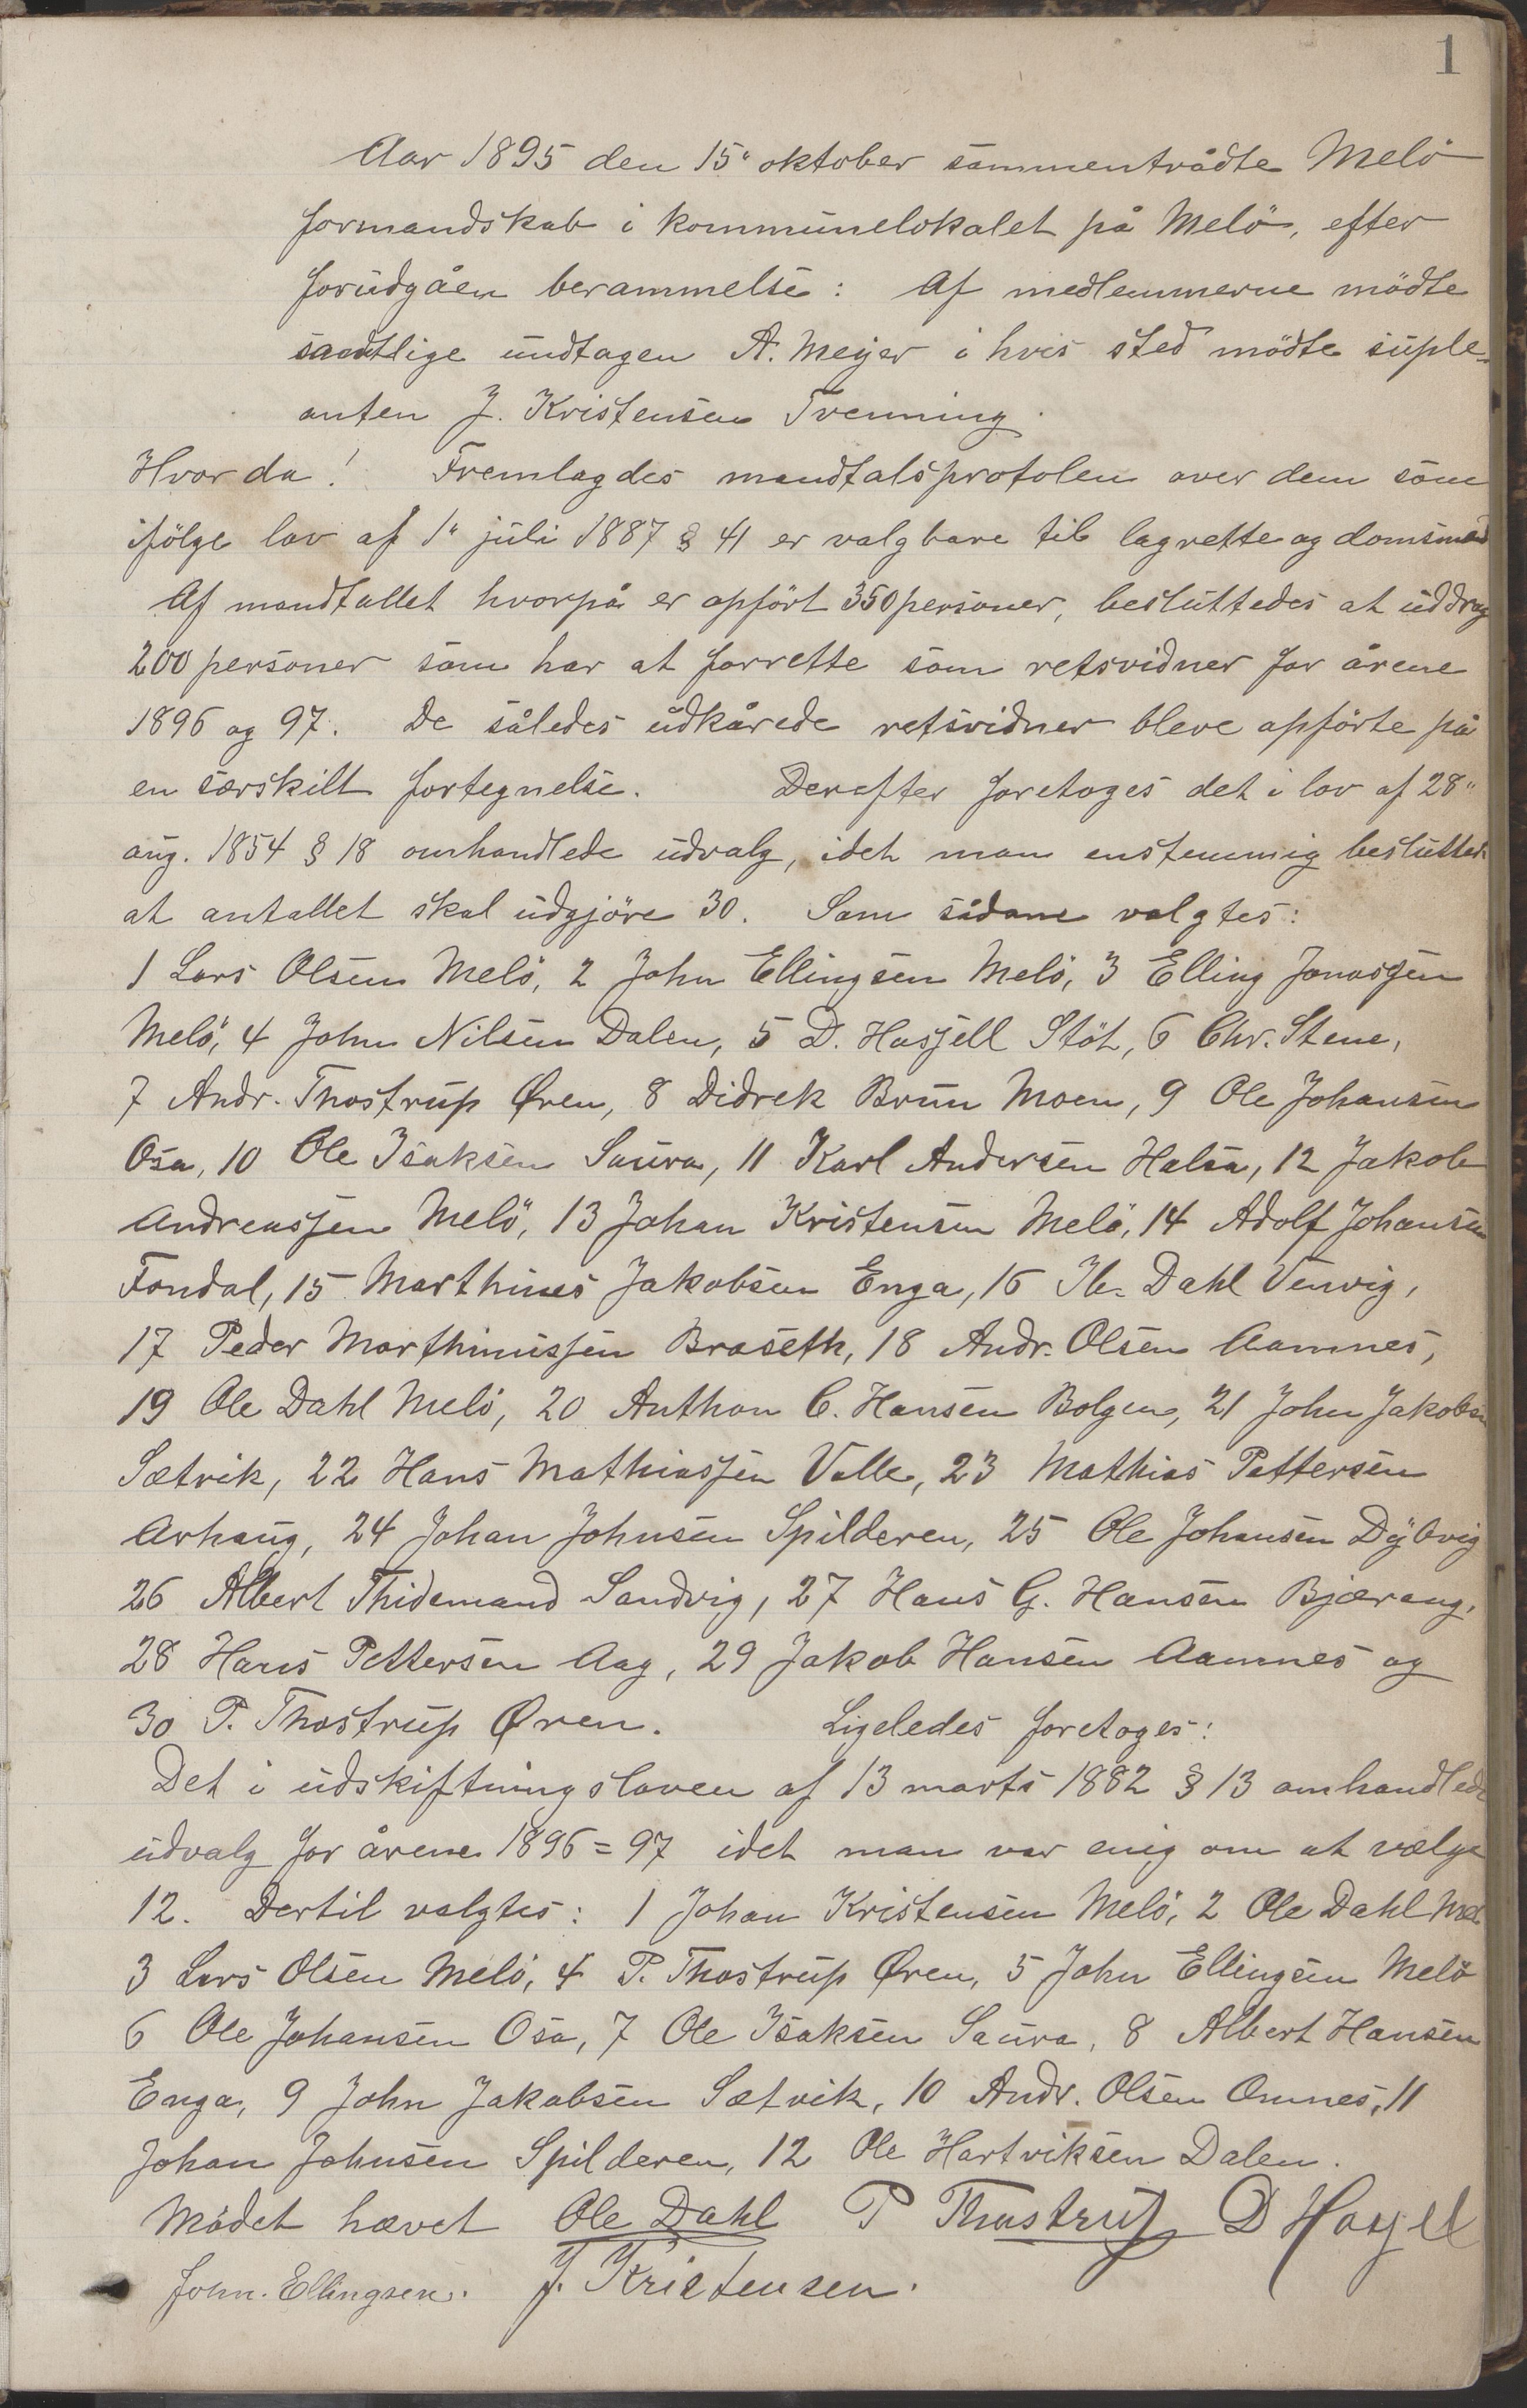 1
Aar 1895 den 15" oktober sammentrådte Melö
formandskab i kommunelokalet på Melö, efter
forudgåen berammelse: Af medlemmerne mödte
samtlige undtagen A. Meyer i hvis sted mödte suple-
anten J. Kristensen Trenning.
Hvor da! Fremlagdes mandtalsprotolen over dem som
ifölge lov af 1" juli 1887 § 41 er valgbare til lagrette og domsmænd
Af mandtallet hvorpå er opfört 350 personer, besluttedes at uddrag
200 personer som har at forrette som retsvidner for årene
1896 og 97. De således udkårede retsvidner bleve opförte på
en særskilt fortegnelse. Derefter foretoges det i lov af 28"
aug. 1854 § 18 omhandlede udvalg, idet man enstemmig besluttede
at antallet skal udgjöre 30. Som sådane valgtes:
1 Lars Olsen Melö, 2 John Ellingsen Melö, 3 Elling Jonassen
Melö, 4 John Nilsen Dalen, 5 D. Hasjell Stöt, 6 Chr. Stene,
7 Andr. Thostrup Øren, 8 Didrek Brun Moen, 9 Ole Johansen
Osa, 10 Ole Isaksen Saura, 11 Karl Andersen Halsa, 12 Jakob
Andreassen Melö, 13 Johan Kristensen Melö, 14 Adolf Johansen
Fondal, 15 Marthines Jakobsen Enga, 16 Ib. Dahl Venvig,
17 Peder Marthinussen Braseth, 18 Andr. Olsen Aamnes,
19 Ole Dahl Melö, 20 Anthon C. Hansen Bolgen, 21 John Jakobsen
Sætvik, 22 Hans Mathiassen Valle, 23 Mathias Pettersen
Arhaug, 24 Johan Johnsen Spilderen, 25 Ole Johansen Dybvig
26 Albert Thidemand Sandvig, 27 Hans G. Hansen Bjærang,
28 Hans Pettersen Aag, 29 Jakob Hansen Aamnes og
30 P. Thostrup Øren. Ligeledes foretoges:
Det i udskiftningsloven af 13 marts 1882 § 13 omhandlede
udvalg for årene 1896=97 idet man var enig om at vælge
12. Dertil valgtes: 1 Johan Kristensen Melö, 2 Ole Dahl Mel
3 Lars Olsen Melö, 4 P. Thostrup Øren, 5 John Ellingsen Melö
6 Ole Johansen Osa, 7 Ole Isaksen Saura, 8 Albert Hansen
Enga, 9 John Jakobsen Sætvik, 10 Andr. Olsen Omnes, 11
Johan Johnsen Spilderen, 12 Ole Hartviksen Dalen.
Mödet hævet Ole Dahl P Thostrup D Hasjell
John. Ellingsen. J. Kristensen.